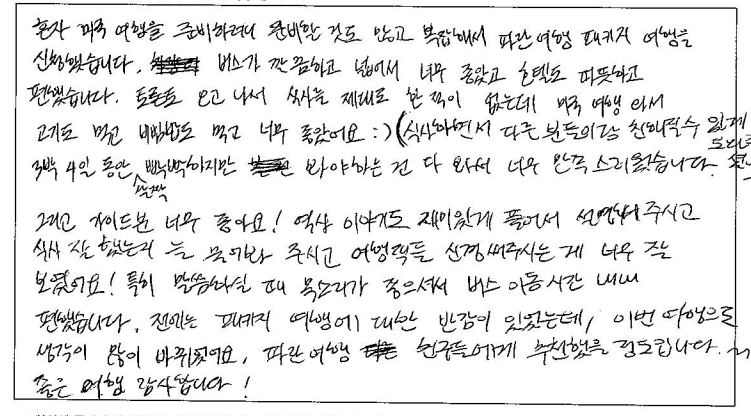 혼자 미국 여행을 준비하려니 준비할 것도 많고 복잡해서 파란여행 패키지 여행을
신청했습니다. 버스가 깐끔하고 넓어서 너무 좋았고 호텔도 따뜻하고
편했습니다. 토론토 오고 나서 식사를 제대로 한 적이 없는데 미국 여행 와서
고기도 먹고 비빔밥도 먹고 너무 좋았어요 :) (식사하면서 다른 분들이랑 친해질 수 있는게
3박 4일 동안 살짝 빡빡하지만 봐야하는 건 다 봐서 너무 만족스러웠습니다.
그리고 가이드분 너무 좋아요! 역사 이야기도 재미있게 풀어서 설명해 주시고
식사 잘 했는지 늘 물어봐 주시고 여행객들 신경써주시는 게 너무 잘
보였어요! 특히 말씀하실 때 목소리가 좋으셔서 버스 이동시간 내내
편했습니다. 전에는 패키지 여행에 대한 반감이 있었는데, 이번 여행으로
생각이 많이 바뀌었어요. 파란여행 친구들에게 추천했을 정도입니다.
좋은 여행 감사합니다!